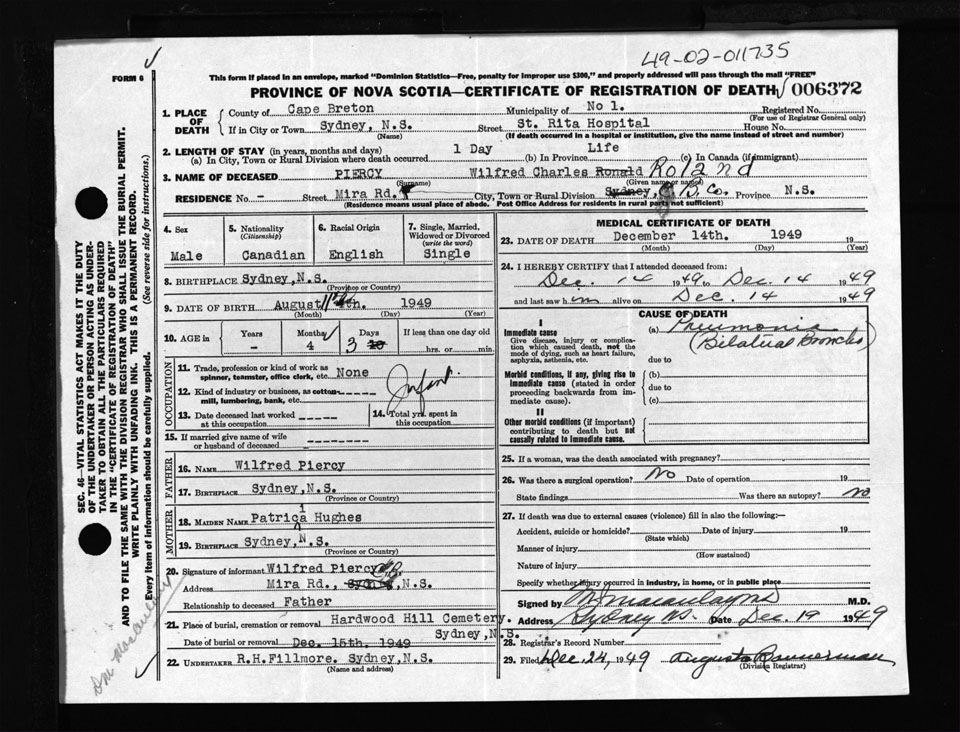 49-02-011735
FORM 6
This form if placed in an envelope, marked "Dominion Statistics—Free, penalty for improper use $300," and properly addressed will pass through the mail "FREE"
PROVINCE OF NOVA SCOTIA—CERTIFICATE OF REGISTRATION OF DEATH 006372
1. PLACE OF DEATH
County of Cape Breton Municipality of No 1. Registered No.
(For use of Registrar General only)
If in City or Town Sydney, N.S. Street St. Rita Hospital House No.
(Name) (If death occurred in a hospital or institution, give the name instead of street and number)
2. LENGTH OF STAY (in years, months and days)
(a) In City, Town or Rural Division where death occurred 1 Day (b) In Province Life (c) In Canada (if immigrant)
3. NAME OF DECEASED PIERCY Wilfred Charles Ronald Roland
(Surname) (Given name or names)
RESIDENCE No. - Street Mira Rd. City, Town or Rural Division Sydney, C.B.Co. Province N.S.
(Residence means usual place of abode. Post Office Address for residents in rural parts not sufficient)
4. Sex
Male
5. Nationality
(Citizenship)
Canadian
6. Racial Origin
English
7. Single, Married, Widowed or Divorced
(write the word)
Single
8. BIRTHPLACE Sydney, N.S.
(Province or Country)
9. DATE OF BIRTH August 11th. 1949
(Month) (Day) (Year)
10. AGE in
Years Months Days If less than one day old
- 4 3 10 hrs. or min.
OCCUPATION
11. Trade, profession or kind of work as spinner, teamster, office clerk, etc. None
12. Kind of industry or business, as cotton-mill, lumbering, bank, etc.
Infant
13. Date deceased last worked at this occupation
14. Total yrs. spent in this occupation
15. If married give name of wife or husband of deceased
FATHER
16. NAME Wilfred Piercy
17. BIRTHPLACE Sydney, N.S.
(Province or Country)
MOTHER
18. MAIDEN NAME Patricia Hughes
19. BIRTHPLACE Sydney, N.S.
(Province or Country)
20. Signature of informant Wilfred Piercy
Address Mira Rd., Sydney, N.S.
Relationship to deceased Father
21. Place of burial, cremation or removal Hardwood Hill Cemetery.
Sydney, N.S.
Date of burial or removal Dec. 15th. 1949
22. UNDERTAKER R.H.Fillmore. Sydney, N.S.
(Name and address)
MEDICAL CERTIFICATE OF DEATH
23. DATE OF DEATH December 14th. 1949 19
(Month) (Day) (Year)
24. I HEREBY CERTIFY that I attended deceased from:
Dec. 14 1949 to Dec. 14 1949
and last saw him alive on Dec. 14 1949
CAUSE OF DEATH
I
Immediate cause
Give disease, injury or complication which caused death, not the mode of dying, such as heart failure, asphyxia, asthenia, etc.
(a) Pneumonia
(Bilateral Broncho)
due to
Morbid conditions, if any, giving rise to immediate cause (stated in order proceeding backwards from immediate cause).
(b)
due to
(c)
II
Other morbid conditions (if important) contributing to death but not causally related to immediate cause.
25. If a woman, was the death associated with pregnancy?
26. Was there a surgical operation? No Date of operation 19
State findings Was there an autopsy? no
27. If death was due to external causes (violence) fill in also the following:—
Accident, suicide or homicide? Date of injury 19
(State which)
Manner of injury
(How sustained)
Nature of injury
Specify whether injury occurred in industry, in home, or in public place
Signed by M Macaulay M.D.
Address Sydney N.S. Date Dec. 19 1949
28. Registrar's Record Number
29. Filed Dec 24, 1949 Augusta Bannerman
(Division Registrar)
SEC. 46—VITAL STATISTICS ACT MAKES IT THE DUTY OF THE UNDERTAKER OR PERSON ACTING AS UNDERTAKER TO OBTAIN ALL THE PARTICULARS REQUIRED IN THE "CERTIFICATE OF REGISTRATION OF DEATH"
AND TO FILE THE SAME WITH THE DIVISION REGISTRAR WHO SHALL ISSUE THE BURIAL PERMIT.
WRITE PLAINLY WITH UNFADING INK. THIS IS A PERMANENT RECORD.
Every item of information should be carefully supplied. (See reverse side for instructions.)
Dr. Macaulay